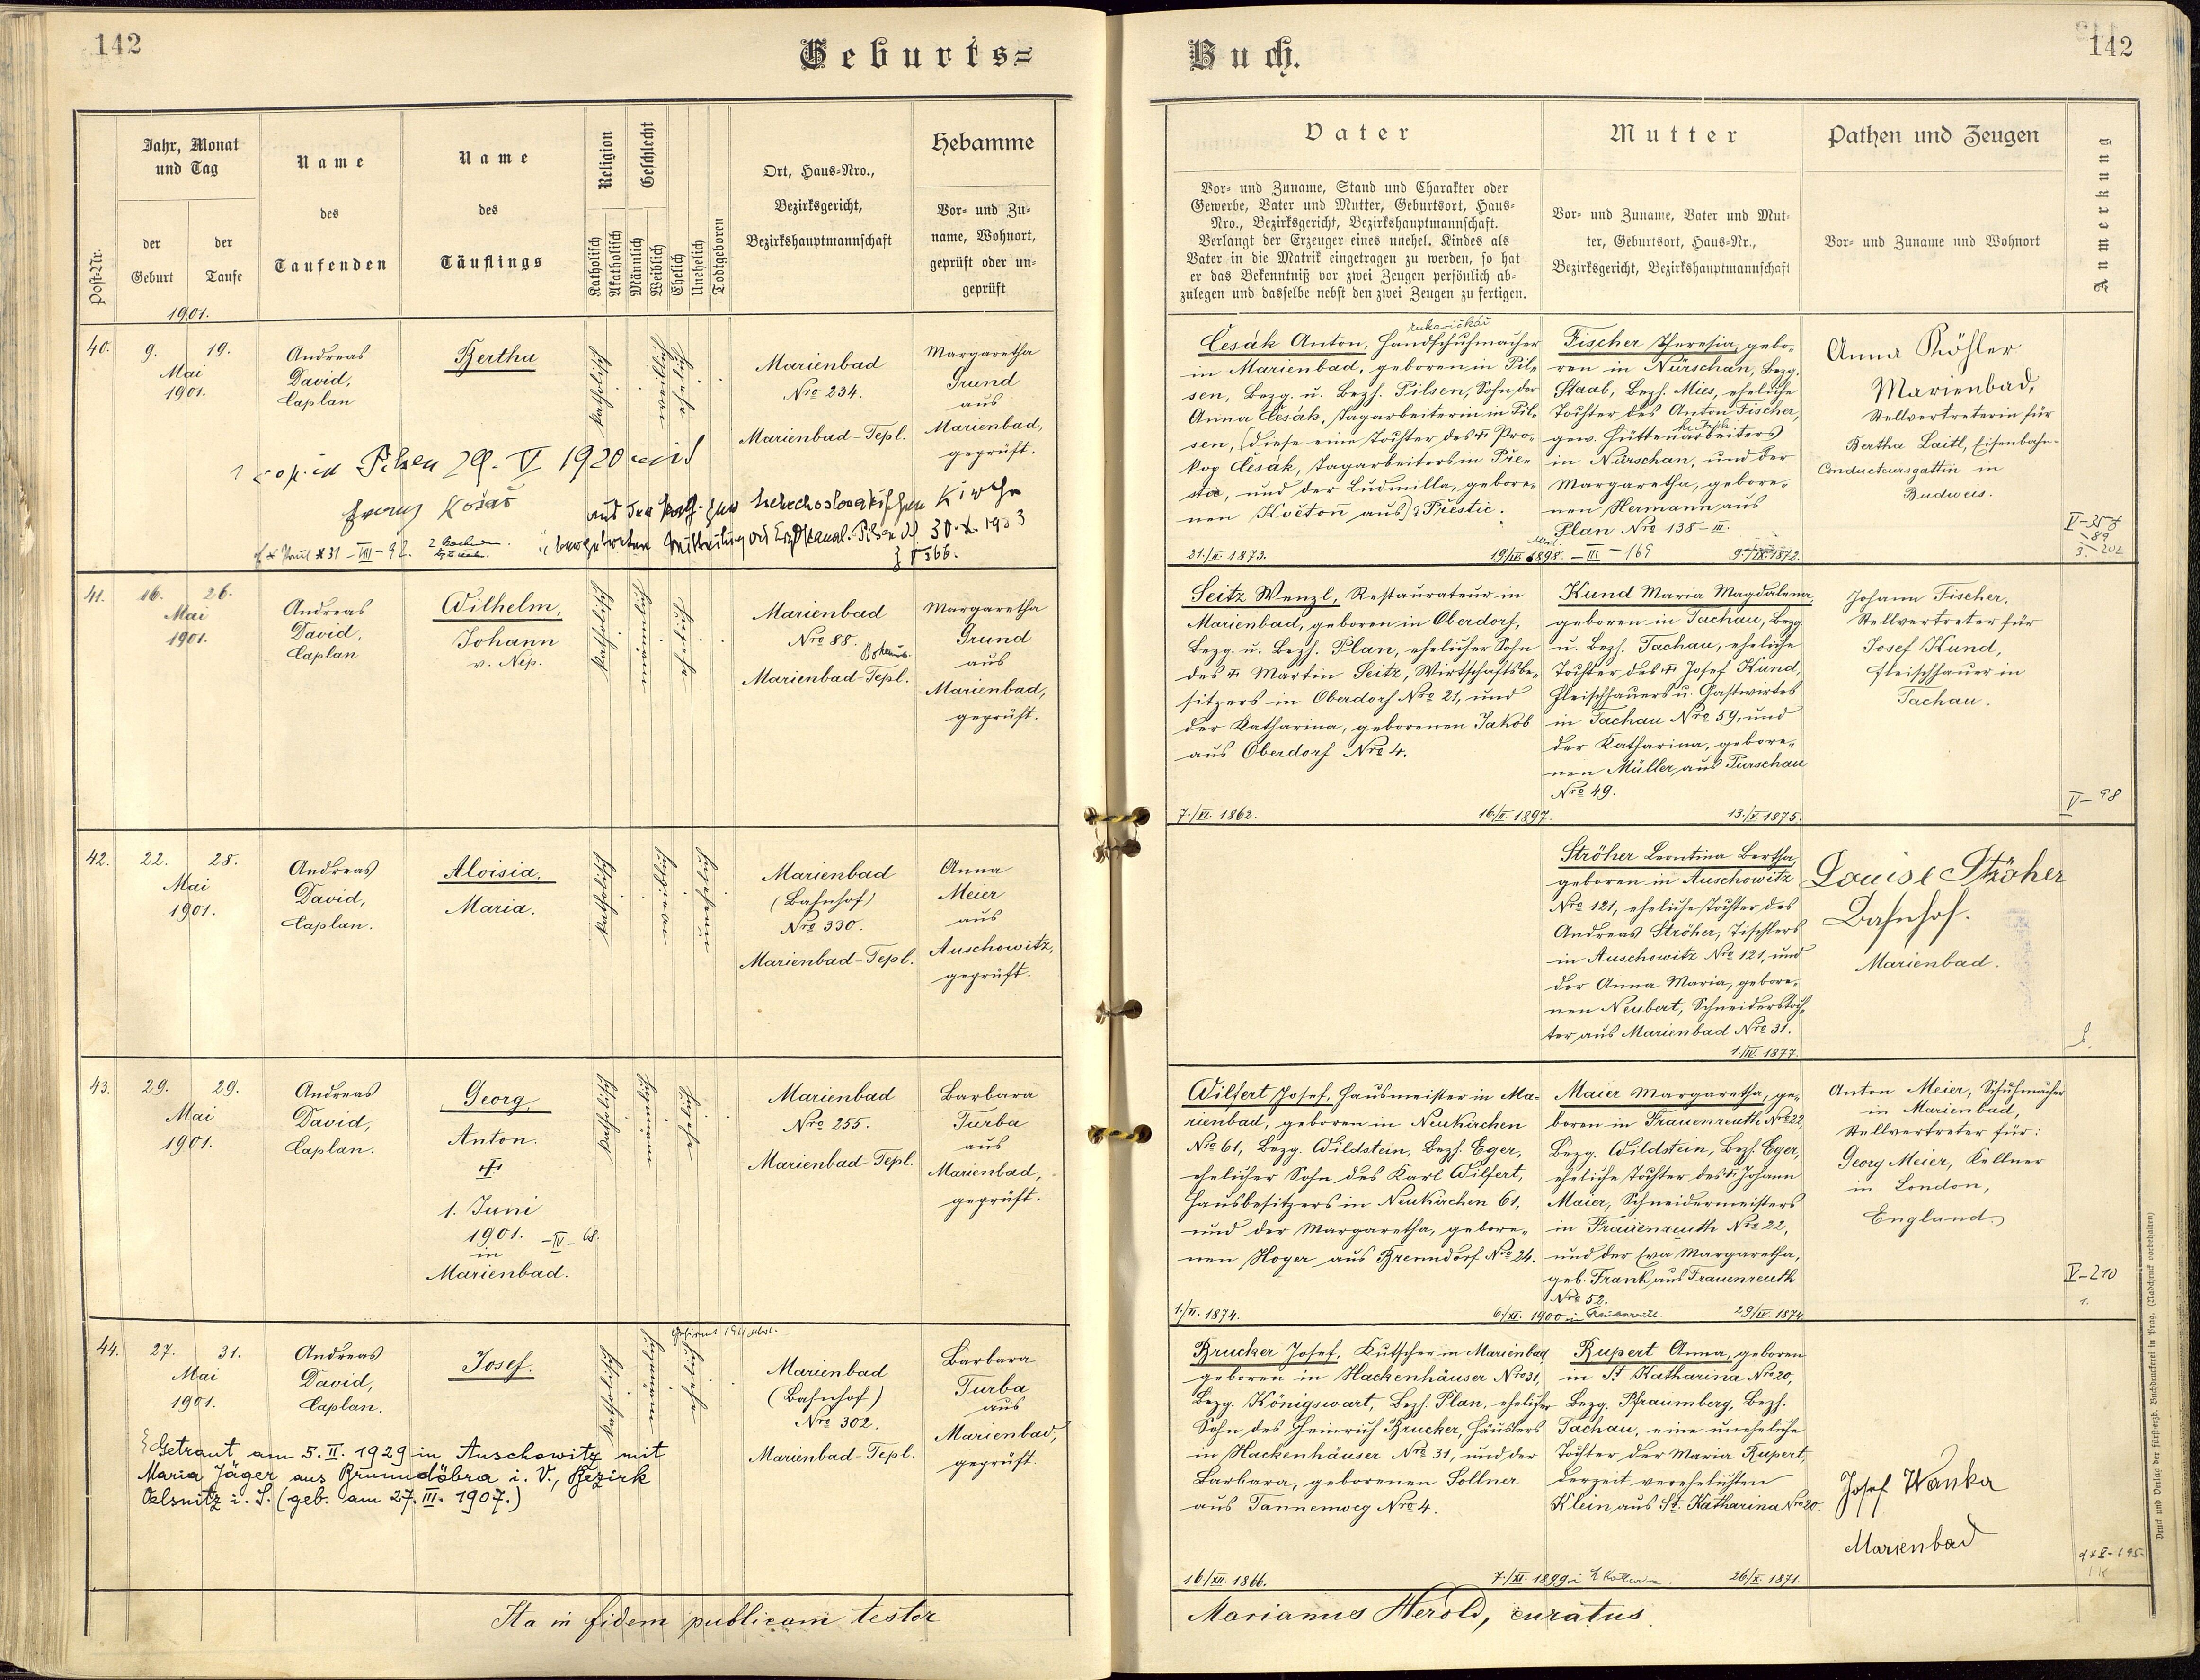 142
Geburts=
Jahr, Monat
und Tag
der
Geburt
der
Taufe
Post-Nr.
Name
des
Taufenden
Name
des
Täuflings
Religion
Katholisch
Akatholisch
Geschlecht
Männlich
Weiblich
Ehelich
Unehelich
Todtgeboren
Ort, Haus-Nro.,
Bezirksgericht,
Bezirkshauptmannschaft
Hebamme
Vor- und Zu-
name, Wohnort,
geprüft oder un-
geprüft
1901.
40.
9.
19.
Mai
1901.
Andreas
David,
Caplan
Bertha
katholisch
weiblich
ehelich
Marienbad
Nro 234.
Marienbad-Tepl.
Margaretha
Grund
aus
Marienbad,
geprüft.
cop. in Pilsen 29. V 1920 mit
Franz Košař
aus der kath. zur tschechoslowakischen Kirche
30. X. 1923
41.
16.
26.
Mai
1901.
Andreas
David,
Caplan
Wilhelm,
Johann
v. Nep.
katholisch
männlich
ehelich
Marienbad
Nro 88.
Marienbad-Tepl.
Margaretha
Grund
aus
Marienbad,
geprüft.
42.
22.
28.
Mai
1901.
Andreas
David,
Caplan.
Aloisia,
Maria.
katholisch
weiblich
unehelich
Marienbad
(Bahnhof)
Nro 330.
Marienbad-Tepl.
Anna
Meier
aus
Auschowitz,
geprüft.
43.
29.
29.
Mai
1901.
Andreas
David,
Caplan.
Georg,
Anton.
1. Juni
1901. -IV- 68.
in
Marienbad.
katholisch
männlich
ehelich
Marienbad
Nro 255.
Marienbad-Tepl.
Barbara
Turba
aus
Marienbad,
geprüft.
44.
27.
31.
Mai
1901.
Andreas
David,
Caplan.
Josef.
katholisch
männlich
ehelich
Marienbad
(Bahnhof)
Nro 302.
Marienbad-Tepl.
Barbara
Turba
aus
Marienbad,
geprüft.
Getraut am 5. II. 1929 in Auschowitz mit
Maria Jäger aus Brunndöbra i. V., Bezirk
Oelsnitz i. S. (geb. am 27. III. 1907.)
Ita in fidem publicam testor
Buch.
142
Vater
Vor- und Zuname, Stand und Charakter oder
Gewerbe, Vater und Mutter, Geburtsort, Haus-
Nro., Bezirksgericht, Bezirkshauptmannschaft.
Verlangt der Erzeuger eines unehel. Kindes als
Vater in die Matrik eingetragen zu werden, so hat
er das Bekenntniß vor zwei Zeugen persönlich ab-
zulegen und dasselbe nebst den zwei Zeugen zu fertigen.
Mutter
Vor- und Zuname, Vater und Mut-
ter, Geburtsort, Haus-Nr.,
Bezirksgericht, Bezirkshauptmannschaft
Pathen und Zeugen
Vor- und Zuname und Wohnort
Anmerkung
rukavičkář
Česák Anton, Handschuhmacher
in Marienbad, geboren in Pil-
sen, Bezg. u. Bezh. Pilsen, Sohn der
Anna Česák, Tagarbeiterin in Pil-
sen, (diese eine Tochter des † Pro-
kop Česák, Tagarbeiters in Pře-
stic, und der Ludmilla, gebore-
nen Květoň aus) Přestic.
21./II. 1873.
Fischer Theresia, gebo-
ren in Nürschan, Bezg.
Staab, Bezh. Mies, eheliche
Tochter des Anton Fischer,
gew. Hüttenarbeiters
in Nürschan, und der
Margaretha, gebore-
nen Hermann aus
Plan Nro 138-III.
1898. - III - 169
1872.
Anna Köhler
Marienbad,
Stellvertreterin für
Bertha Laitl, Eisenbahn-
Conducteursgattin in
Budweis.
Seitz Wenzl, Restaurateur in
Marienbad, geboren in Oberdorf,
Bezg. u. Bezh. Plan, ehelicher Sohn
des † Martin Seitz, Wirtschaftsbe-
sitzers in Oberdorf Nro 21, und
der Katharina, geborenen Jakob
aus Oberdorf Nro 4.
7./VI. 1862.
16./II. 1897.
Kund Maria Magdalena,
geboren in Tachau, Bezg.
u. Bezh. Tachau, eheliche
Tochter des † Josef Kund,
Fleischhauers u. Gastwirtes
in Tachau Nro 59, und
der Katharina, gebore-
nen Müller aus Purschau
Nro 49.
13./V. 1875.
Johann Fischer,
Stellvertreter für
Josef Kund,
Fleischhauer in
Tachau.
V-98
Ströher Leontina Bertha,
geboren in Auschowitz
Nro 121, eheliche Tochter des
Andreas Ströher, Tischlers
in Auschowitz Nro 121, und
der Anna Maria, gebore-
nen Neubert, Schneiderstoch-
ter aus Marienbad Nro 31.
1./IV. 1877.
Louise Ströher
Bahnhof.
Marienbad.
Wilfert Josef, Hausmeister in Ma-
rienbad, geboren in Neukirchen
Nro 61, Bezg. Wildstein, Bezh. Eger,
ehelicher Sohn des Karl Wilfert,
Hausbesitzers in Neukirchen 61,
und der Margaretha, gebore-
nen Hoyer aus Brenndorf Nro 24.
1./II. 1874.
6./XI. 1900 in Frauenreuth.
Maier Margaretha, ge-
boren in Frauenreuth Nro 22,
Bezg. Wildstein, Bezh. Eger,
eheliche Tochter des † Johann
Maier, Schneidermeisters
in Frauenreuth Nro 22,
und der Eva Margaretha,
geb. Frank aus Frauenreuth
Nro 52.
29/IV. 1874
Anton Meier, Schuhmacher
in Marienbad,
Stellvertreter für:
Georg Meier, Kellner
in London,
England.
V-210
1.
Brucker Josef, Kutscher in Marienbad,
geboren in Hackenhäuser Nro 31,
Bezg. Königswart, Bezh. Plan, ehelicher
Sohn des Heinrich Brucker, Häuslers
in Hackenhäuser Nro 31, und der
Barbara, geborenen Sollner
aus Tannenweg Nro 4.
16./XII. 1866.
7./XI. 1899
Rupert Anna, geboren
in St Katharina Nro 20,
Bezg. Pfraumberg, Bezh.
Tachau, eine uneheliche
Tochter der Maria Rupert,
derzeit verehelichten
Klein aus St. Katharina Nro 20.
26/X. 1871.
Josef Wanka
Marienbad
Marianus Herold, curatus.
Druck und Verlag der fürsterzb. Buchdruckerei in Prag. (Nachdruck vorbehalten)